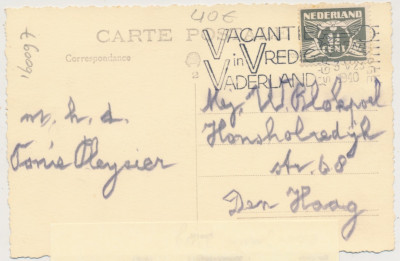 40€
16097
CARTE POS
Correspondance
VACANTI
in VREDE
VADERLAND
NEDERLAND
CENT
1940
m. h. d.
Tonie Pleysier
Mej. W. Blokpoel
Honsholredijk
str. 68
Den Haag